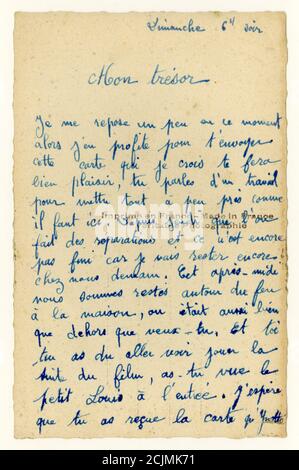 Dimanche 6H soir
Mon trésor.
Je me repose un peu en ce moment
alors j'en profite pour t'envoyer
cette carte qui je crois te fera
bien plaisir, tu parles d'un travail
pour mettre tout a peu pres comme
il faut ici. Depuis jeudi que l'on
fait des reparations et ce n'est encore
pas fini car je vais rester encore
chez nous demain. Cet après-midi
nous sommes restés autour du feu
à la maison, on était aussi bien
que dehors que veux-tu. Et toi
tu as du aller voir jouer la
suite du film, as-tu vue le
petit Louis à l'entrée. J'espère
que tu as reçue la carte qu'Yvette
Imprimé en France Made in France
alamy
Image ID: 2CJMK71
www.alamy.com